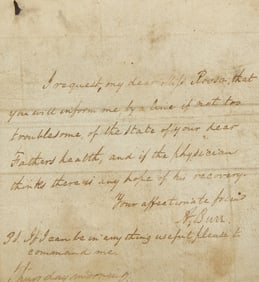 I request, my dear Miss Roosa, that
you will inform me by a line if not too
troublesome, of the state of your dear
Fathers health, and if the physician
thinks there is any hope of his recovery.
Your affectionate friend
Burr
If I can be in any thing useful please to
command me.
Thursday morning